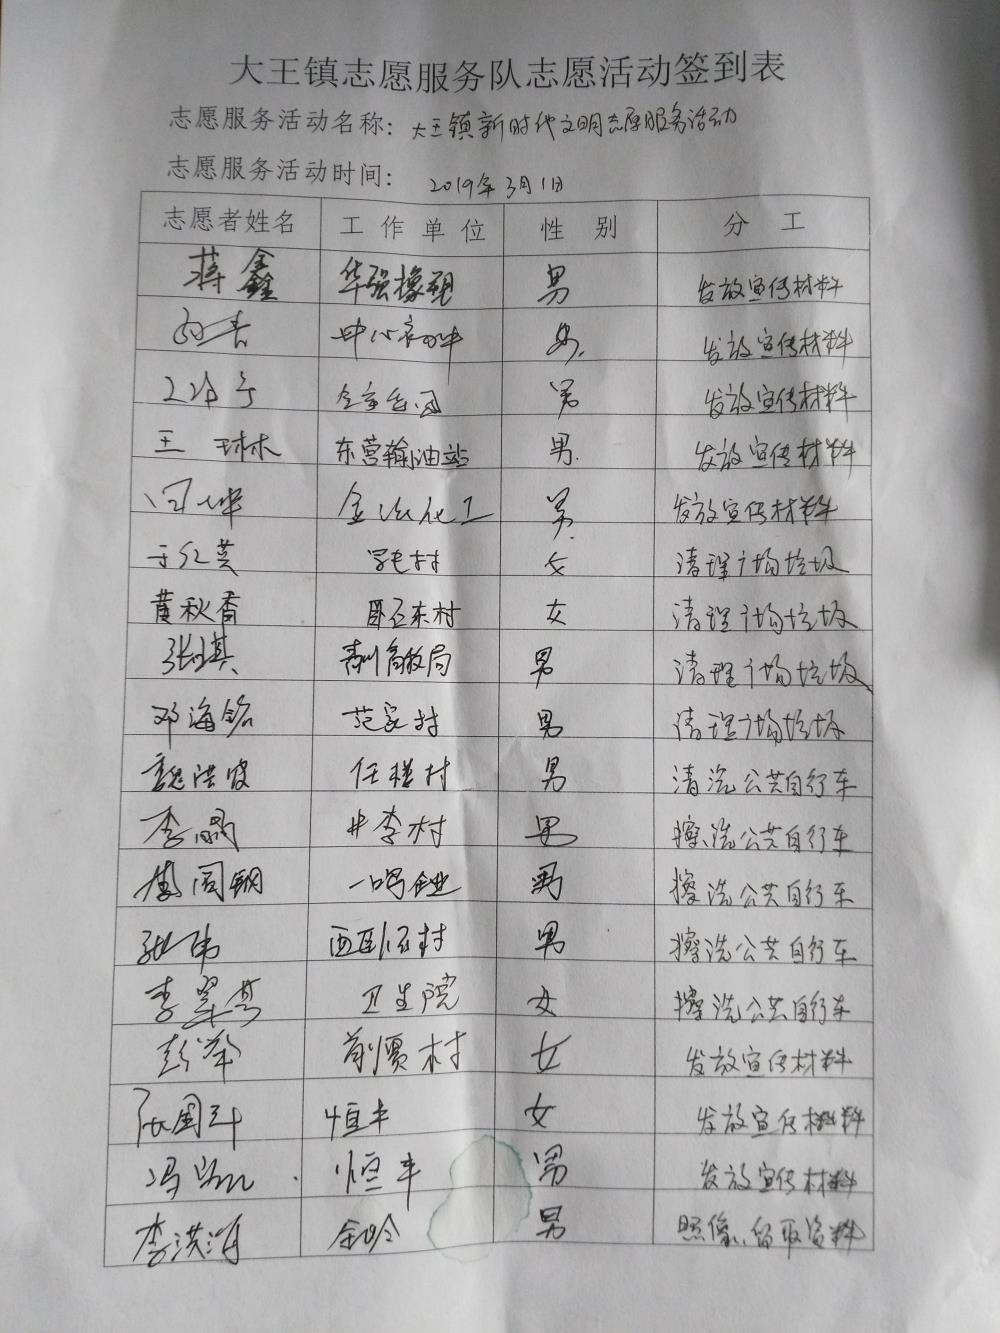 大王镇志愿服务队志愿活动签到表
志愿服务活动名称：大王镇新时代文明志愿服务活动
志愿服务活动时间：2019年3月1日
志愿者姓名 工作单位 性别 分工
蒋鑫 华强橡塑 男 发放宣传材料
男 发放宣传材料
男 发放宣传材料
王琳 东营输油站 男 发放宣传材料
化工 男 发放宣传材料
于红英 村 女 清理广场垃圾
黄秋香 卧石东村 女 清理广场垃圾
张琪 局 男 清理广场垃圾
邓海铭 范家村 男 清理广场垃圾
魏洪波 任楼村 男 清洗公共自行车
李晶 井李村 男 擦洗公共自行车
男 擦洗公共自行车
张伟 西卧石村 男 擦洗公共自行车
李翠 卫生院 女 擦洗公共自行车
彭 前贾村 女 发放宣传材料
恒丰 女 发放宣传材料
冯 恒丰 男 发放宣传材料
李洪海 金岭 男 照像、留取资料